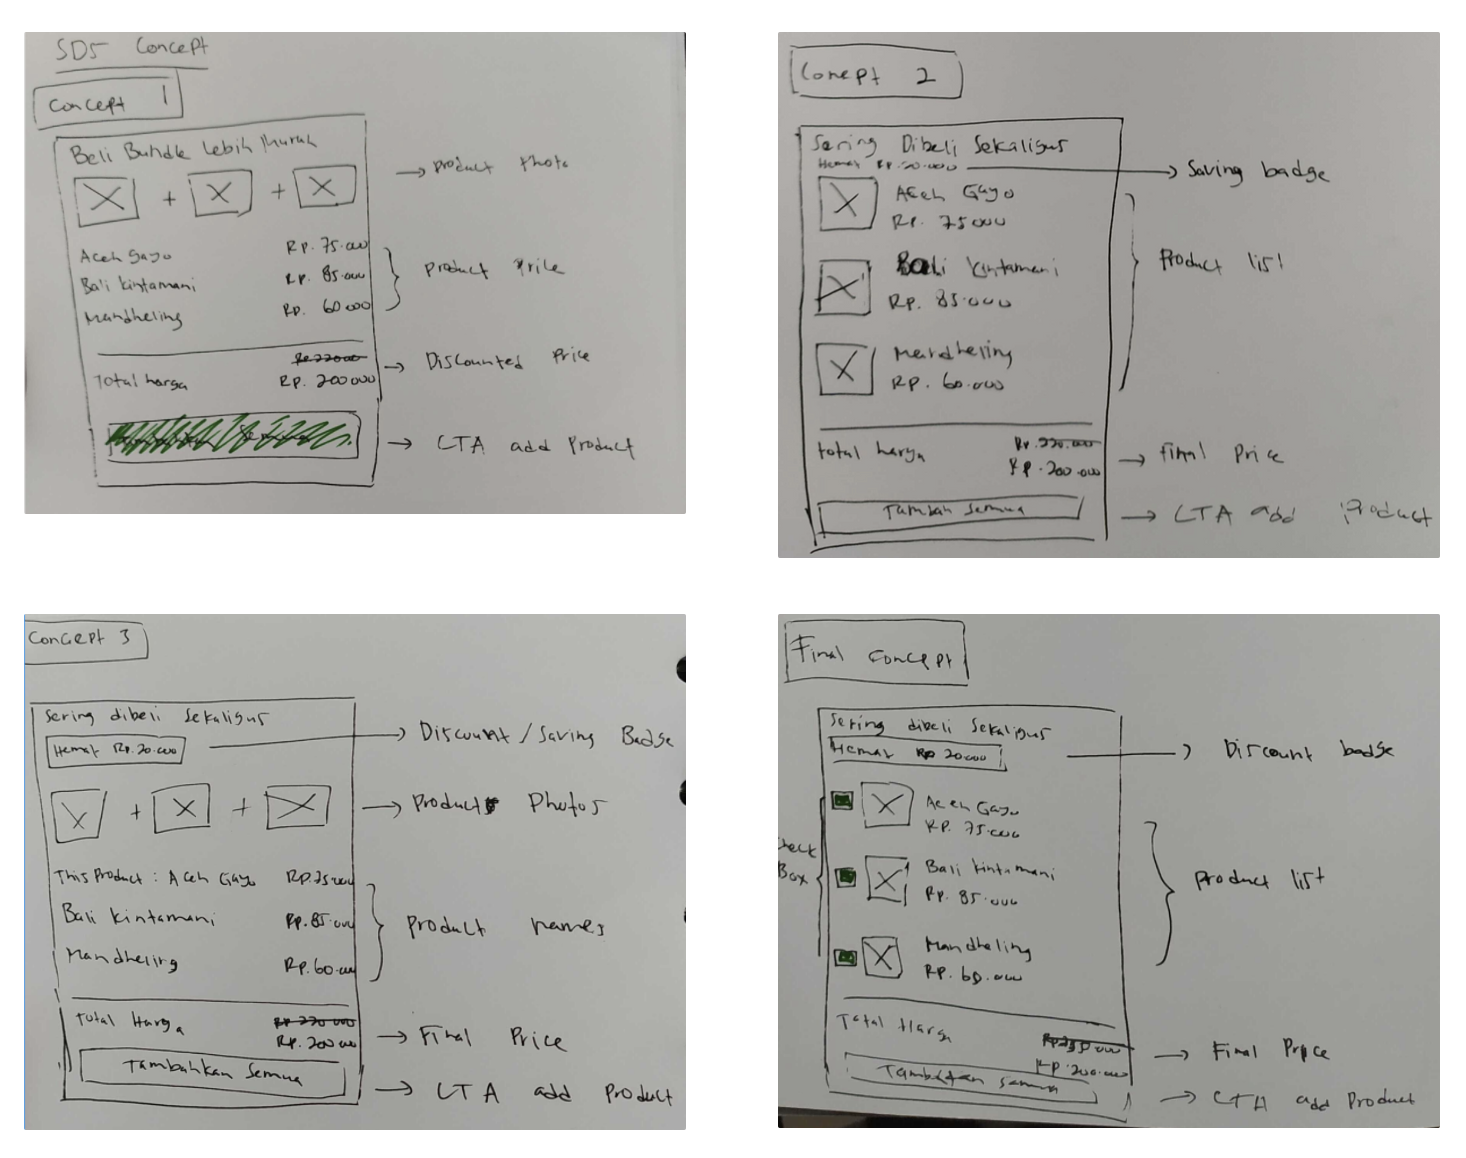 SDS Concept
Concept 1
Beli Bundle Lebih Murah
+ +
→ Product Photo
Aceh Gayo Rp. 75.000
Bali kintamani Rp. 85.000
Mandheling Rp. 60.000
Product Price
Total harga Rp. 200.000
→ Discounted Price
→ CTA add Product
Concept 2
Sering Dibeli Sekaligus
Hemat Rp. 20.000
→ Saving badge
Aceh Gayo
Rp. 75000
Bali kintamani
Rp. 85.000
Mandheling
Rp. 60.000
Product list
total harga Rp. 220.000
Rp. 200.000
→ Final Price
Tambah Semua
→ CTA add Product
Concept 3
Sering dibeli Sekaligus
Hemat Rp. 20.000
→ Discount / Saving Badge
+ +
→ Product Photos
This Product : Aceh Gayo Rp. 75.000
Bali kintamani Rp. 85.000
Mandheling Rp. 60.000
Product names
Total Harga Rp 220 000
Rp. 200 000
→ Final Price
Tambahkan Semua
→ CTA add Product
Final Concept
Sering dibeli Sekaligus
Hemat Rp 20.000
→ Discount badge
Aceh Gayo
Rp. 75.000
Bali kintamani
Rp. 85.000
Mandheling
Rp. 60.000
Box
Product list
Total Harga
Rp. 200.000
→ Final Price
Semua
→ CTA add Product